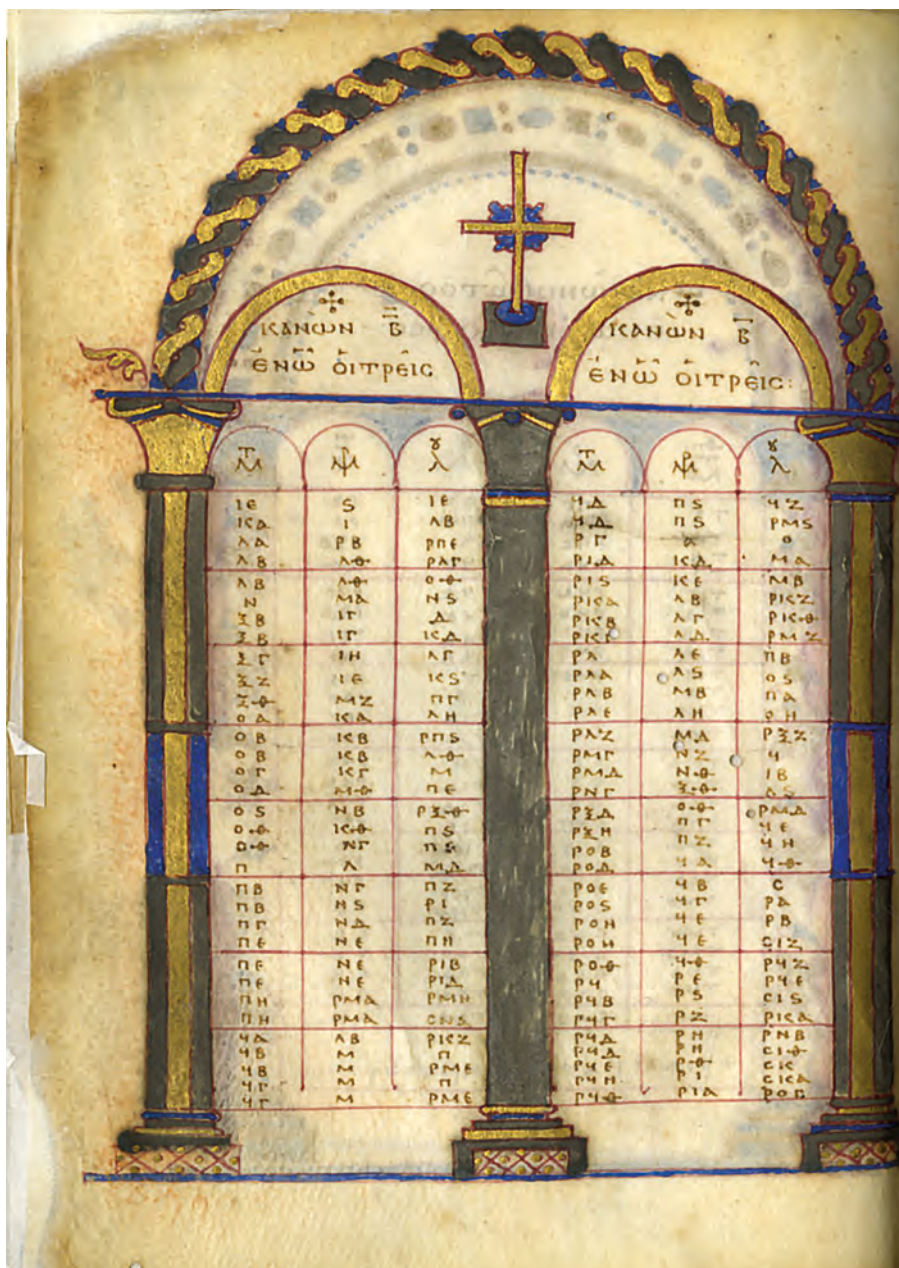 ΚΑΝῺΝ Β̅
ἘΝ Ὧ ΟἹ ΤΡΕῖϹ
ΜΤ ΜΡ ΛΟΥ
ΙΕ Ϛ ΙΕ
ΚΑ Ι ΛΒ
ΛΑ ΡΒ ΡΠΕ
ΛΒ ΛΘ ΡΛΓ
ΛΒ ΛΘ ΟΘ
Ν ΜΑ ΝϚ
ΞΒ ΙΓ Δ
ΞΒ ΙΓ ΚΔ
ΞΓ ΙΗ ΛΓ
ΞΖ ΙΕ ΚϚ
ΞΘ ΜΖ ΠΓ
ΟΑ ΚΑ ΛΗ
ΟΒ ΚΒ ΡΠϚ
ΟΒ ΚΒ ΛΘ
ΟΓ ΚΓ Μ
ΟΔ ΜΘ ΠΕ
ΟϚ ΝΒ ΡΞΘ
ΟΘ ΚΘ ΠϚ
ΟΘ ΝΓ ΠϚ
Π Λ ΜΔ
ΠΒ ΝΓ ΠΖ
ΠΒ ΝϚ ΡΙ
ΠΓ ΝΔ ΠΖ
ΠΕ ΝΕ ΠΗ
ΠΕ ΝΕ ΡΙΒ
ΠΕ ΝΕ ΡΙΔ
ΠΗ ΡΜΑ ΡΜΗ
ΠΗ ΡΜΑ
ϞΑ ΛΒ ΡΚΖ
ϞΒ Μ Π
ϞΒ Μ ΡΜΕ
ϞΓ Μ Π
ϞΓ Μ ΡΜΕ
ΚΑΝῺΝ Β̅
ἘΝ Ὧ ΟἹ ΤΡΕῖϹ:
ΜΤ ΜΡ ΛΟΥ
ϞΔ ΠϚ ϞΖ
ϞΔ ΠϚ ΡΜϚ
ΡΓ Α Ο
ΡΙΔ ΚΔ ΜΑ
ΡΙϚ ΚΕ ΜΒ
ΡΚΑ ΛΒ ΡΚΖ
ΡΚΒ ΛΓ ΡΚΘ
ΡΚΓ ΛΔ ΡΜΖ
ΡΛ ΛΕ ΠΒ
ΡΛΑ ΛϚ ΟϚ
ΡΛΒ ΜΒ ΠΑ
ΡΛΕ ΛΗ ΟΗ
ΡΛΖ ΜΔ ΡΞΖ
ΡΜΓ ΝΖ Ϟ
ΡΜΔ ΝΘ ΙΒ
ΡΝΓ ΞΘ ΛϚ
ΡΞΔ ΟΘ ΡΜΔ
ΡΞΗ ΠΓ ϞΕ
ΡΟΒ ΠΖ ϞΗ
ΡΟΔ ϞΑ ϞΘ
ΡΟΕ ϞΒ Ϲ
ΡΟϚ ϞΓ ΡΑ
ΡΟΗ ϞΕ ΡΒ
ΡΟΗ ϞΕ ϹΙΖ
ΡΟΘ ϞΘ ΡϞΖ
ΡϞ ΡΕ ΡϞΕ
ΡϞΒ ΡϚ ϹΙϚ
ΡϞΓ ΡΖ ΡΚΑ
ΡϞΔ ΡΗ ΡΝΒ
ΡϞΔ ΡΗ ϹΙΘ
ΡϞΕ ΡΘ ϹΚ
ΡϞΗ ΡΙ ϹΚΑ
ΡϞΘ ΡΙΑ ΡΟΓ